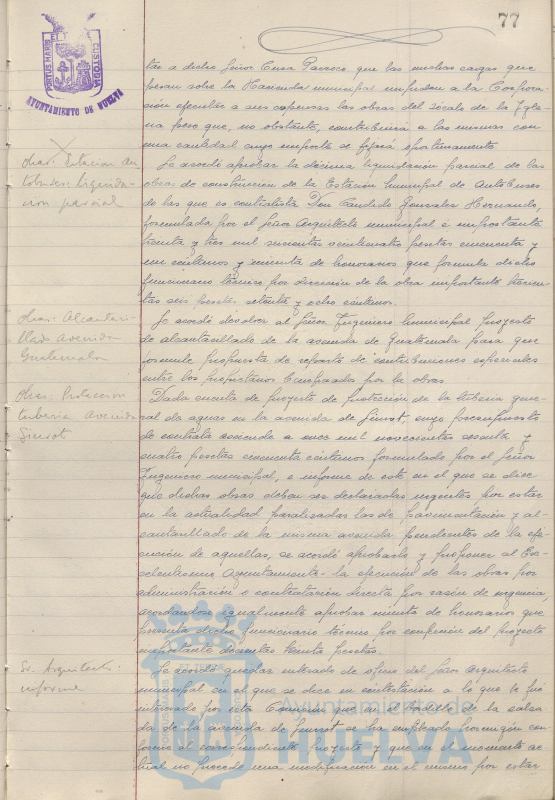 77
PORTUS MARIS ET TERRAE CUSTODIA
AYUNTAMIENTO DE HUELVA
tar a dicho Señor Cura Párroco que las muchas cargas que
pesan sobre la Hacienda municipal impiden a la Corpora-
ción ejecutar a sus expensas las obras del zócalo de la Igle-
sia pero que, no obstante, contribuirá a las mismas con
una cantidad cuyo importe se fijará oportunamente.
Obras: Estación de
Autobuses: liquida-
ción parcial
Se acordó aprobar la décima liquidación parcial de las
obras de construcción de la Estación Municipal de Autobuses
de las que es contratista Don Candido Gonzalez Hernando,
formulada por el Señor Arquitecto municipal é importante
treinta y tres mil pesetas cincuenta y
un céntimos y minuta de honorarios que formula dicho
funcionario técnico por dirección de la obra importante trescien-
tas seis pesetas setenta y ocho céntimos.
Obras: Alcantari-
llado Avenida
Guatemala
Se acordó devolver al Señor Ingeniero Municipal proyecto
de alcantarillado de la avenida de Guatemala para que
formule propuesta de reparto de contribuciones especiales
entre los propietarios beneficiados por la obra.
Obras: Protección
tubería Avenida
Siurot
Dada cuenta de proyecto de protección de la tubería gene-
ral de aguas en la avenida de Siurot, cuyo presupuesto
de contrata asciende a once mil novecientas sesenta y
cuatro pesetas cincuenta céntimos formulado por el Señor
Ingeniero municipal, e informe de este en el que se dice
que dichas obras deben ser declaradas urgentes por estar
en la actualidad paralizadas las de pavimentación y al-
cantarillado de la misma avenida pendientes de la eje-
cución de aquellas, se acordó aprobarlo y proponer al Ex-
celentísimo Ayuntamiento la ejecución de las obras por
administración o contratación directa por razón de urgencia,
acordándose igualmente aprobar minuta de honorarios que
presenta dicho funcionario técnico por confección del proyecto
importante doscientas treinta pesetas.
Sr. Arquitecto:
informe
Se acordó quedar enterado de oficio del Señor Arquitecto
municipal en el que se dice en contestación a lo que le fué
interesado por esta Comisión que en el bordillo de la calza-
da de la avenida de Siurot se ha empleado hormigón con-
forme al correspondiente proyecto y que en el momento ac-
tual no procede una modificación en el mismo por estar
Ayuntamiento de
HUELVA